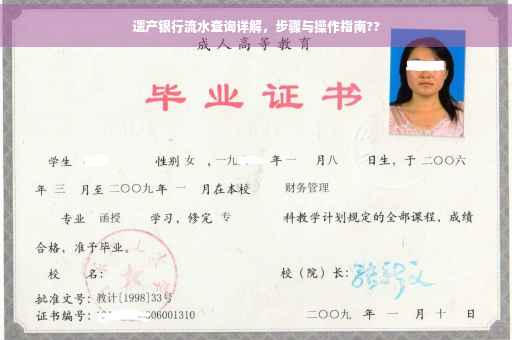 遗产银行流水查询详解，步骤与操作指南??
成人高等教育
毕业证书
学生 性别 女 ，一九 年 一 月八 日生，于 二〇〇六
年 三 月至 二〇〇九 年 一 月在本校 财务管理
专业 函授 学习，修完 专 科教学计划规定的全部课程，成绩
合格，准予毕业。
校 名： 校（院）长：
批准文号：教计[1998]33号
证书编号： 06001310 二〇〇九 年 一 月 十 日